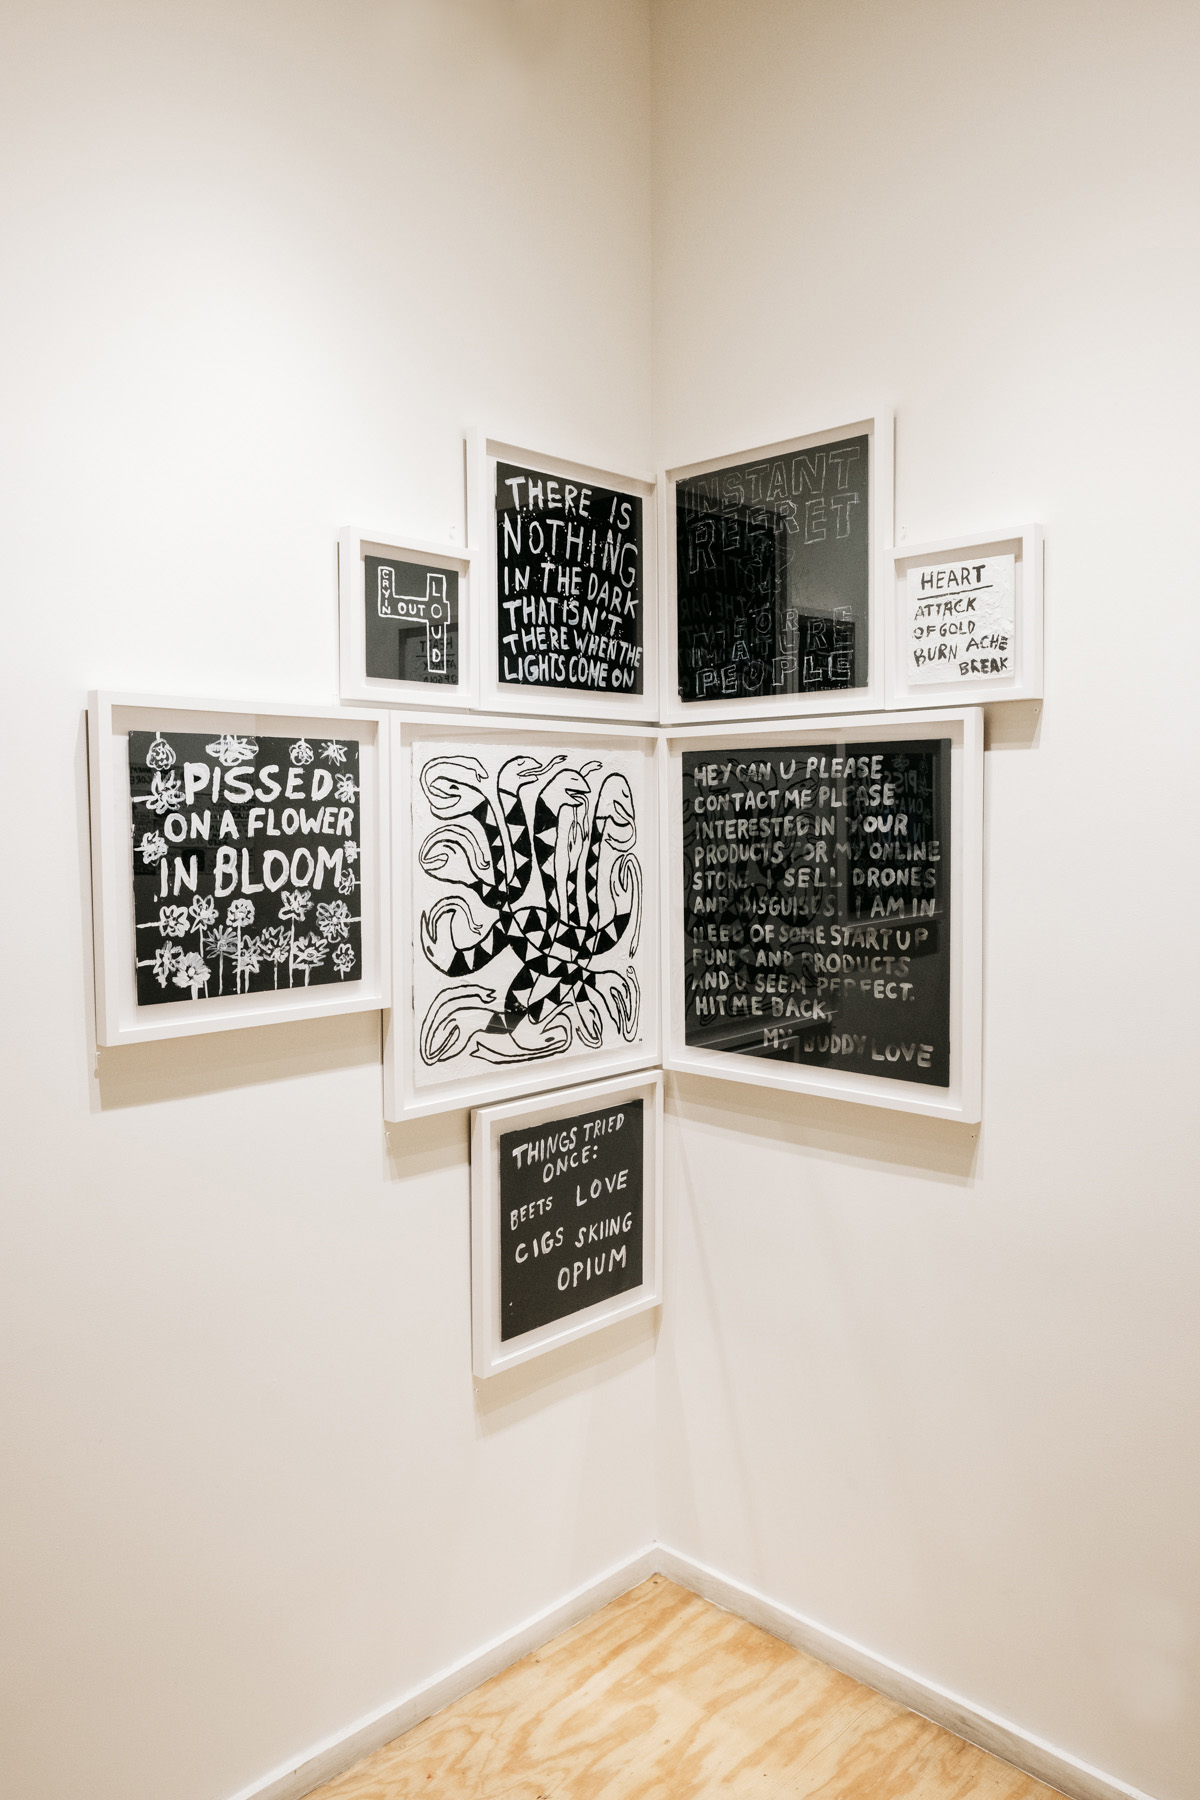 THERE IS
NOTHING
IN THE DARK
THAT ISN'T
THERE WHEN THE
LIGHTS COME ON
INSTANT
REGRET
PEOPLE
CRYIN
OUT
LOUD
HEART
ATTACK
OF GOLD
BURN ACHE
BREAK
PISSED
ON A FLOWER
IN BLOOM
HEY CAN U PLEASE
CONTACT ME PLEASE
INTERESTED IN YOUR
PRODUCTS FOR MY ONLINE
STORE. I SELL DRONES
AND DISGUISES. I AM IN
NEED OF SOME START UP
FUNDS AND PRODUCTS
AND U SEEM PERFECT.
HIT ME BACK,
MY BUDDY LOVE
THINGS TRIED
ONCE:
BEETS LOVE
CIGS SKIING
OPIUM